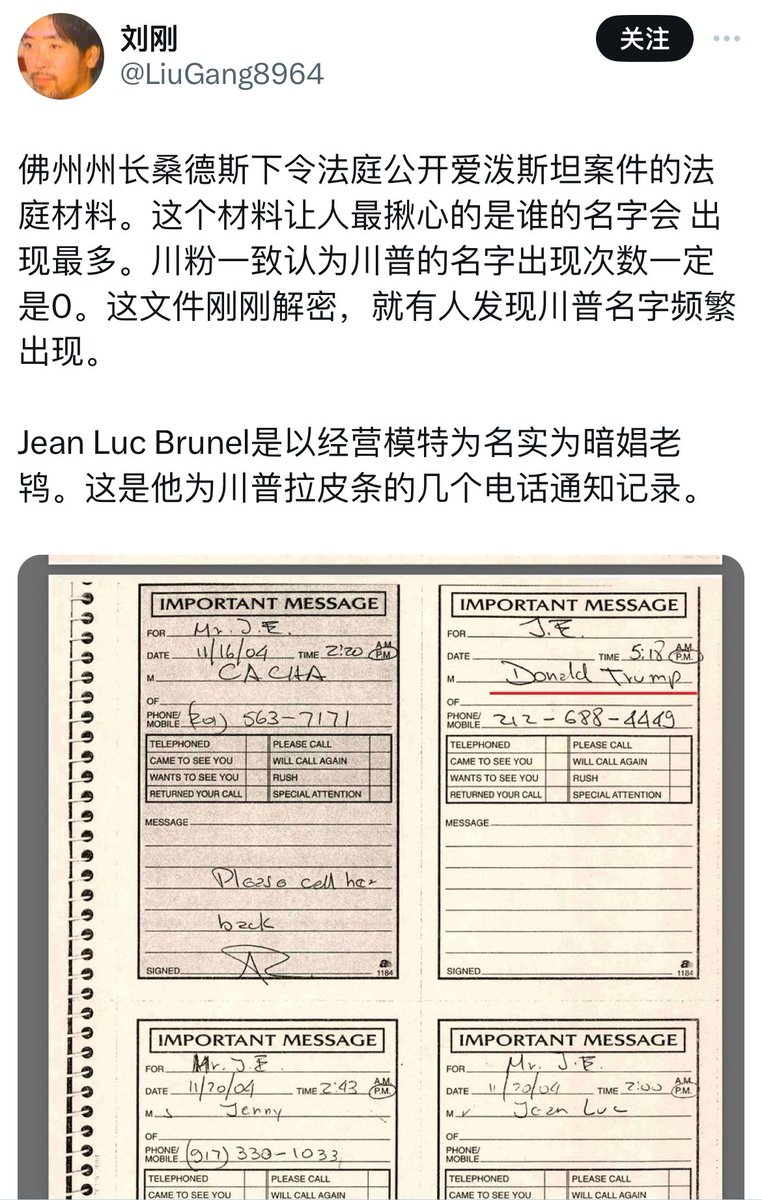 刘刚
@LiuGang8964
关注
佛州州长桑德斯下令法庭公开爱泼斯坦案件的法
庭材料。这个材料让人最揪心的是谁的名字会 出
现最多。川粉一致认为川普的名字出现次数一定
是0。这文件刚刚解密，就有人发现川普名字频繁
出现。
Jean Luc Brunel是以经营模特为名实为暗娼老
鸨。这是他为川普拉皮条的几个电话通知记录。
IMPORTANT MESSAGE
FOR Mr. J.E.
DATE 11/16/04 TIME 2:20 A.M. P.M.
M CACHA
OF
PHONE/ MOBILE 563-7171
TELEPHONED PLEASE CALL
CAME TO SEE YOU WILL CALL AGAIN
WANTS TO SEE YOU RUSH
RETURNED YOUR CALL SPECIAL ATTENTION
MESSAGE
Please call her
back
SIGNED
1184
IMPORTANT MESSAGE
FOR J.E.
DATE TIME 5:18 A.M. P.M.
M Donald Trump
OF
PHONE/ MOBILE 212-688-4449
TELEPHONED PLEASE CALL
CAME TO SEE YOU WILL CALL AGAIN
WANTS TO SEE YOU RUSH
RETURNED YOUR CALL SPECIAL ATTENTION
MESSAGE
SIGNED
1184
IMPORTANT MESSAGE
FOR Mr. J.E.
DATE 11/20/04 TIME 2:43 A.M. P.M.
M Jenny
OF
PHONE/ MOBILE (917) 330-1033
TELEPHONED PLEASE CALL
CAME TO SEE YOU WILL CALL AGAIN
IMPORTANT MESSAGE
FOR Mr. J.E.
DATE 11/20/04 TIME 2:00 A.M. P.M.
M Jean Luc
OF
PHONE/ MOBILE
TELEPHONED PLEASE CALL
CAME TO SEE YOU WILL CALL AGAIN